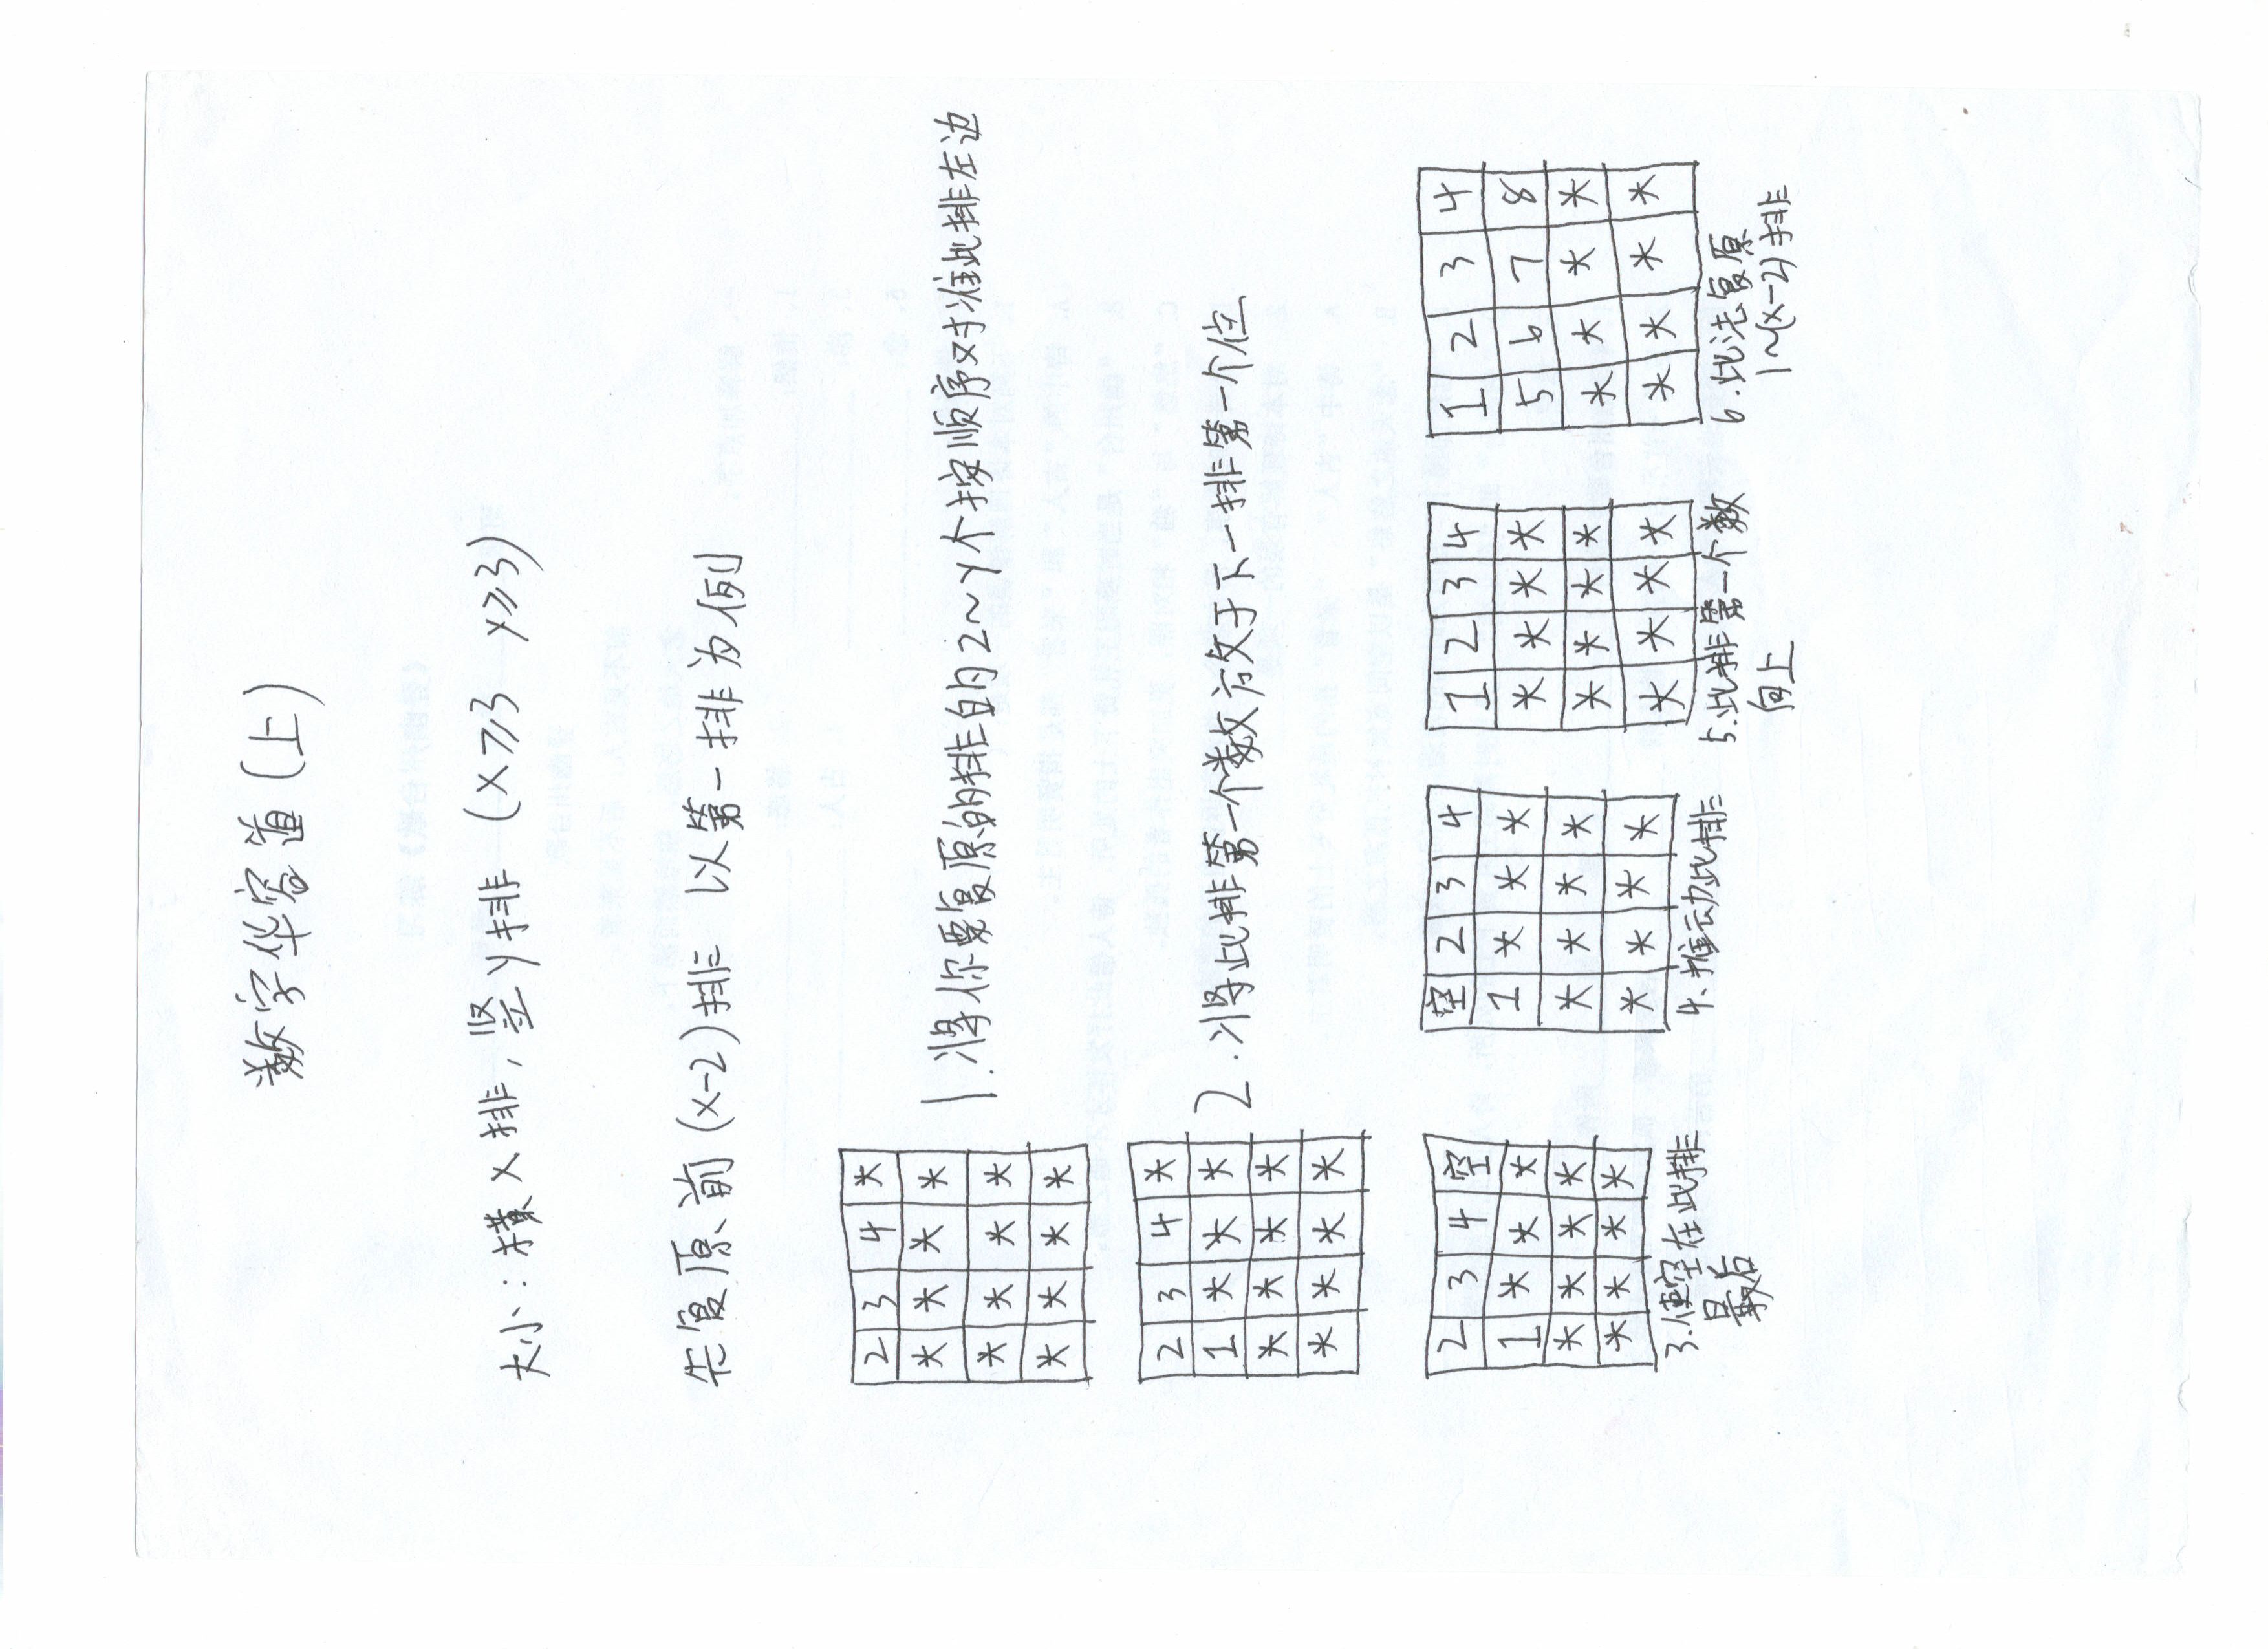 数字华容道(上)
大小:横x排,竖y排 (x≥3 y≥3)
先复原前(x-2)排 以第一排为例
2 3 4 *
* * * *
* * * *
* * * *
1.将你要复原的排的2~y个按顺序对准此排左边
2 3 4 *
1 * * *
* * * *
* * * *
2.将此排第一个数放于下一排第一个位
2 3 4 空
1 * * *
* * * *
* * * *
3.使空在此排
最后
空 2 3 4
1 * * *
* * * *
* * * *
4.推动此排
1 2 3 4
* * * *
* * * *
* * * *
5.此排第一个数
向上
1 2 3 4
5 6 7 8
* * * *
* * * *
6.此法复原
1~(x-2)排